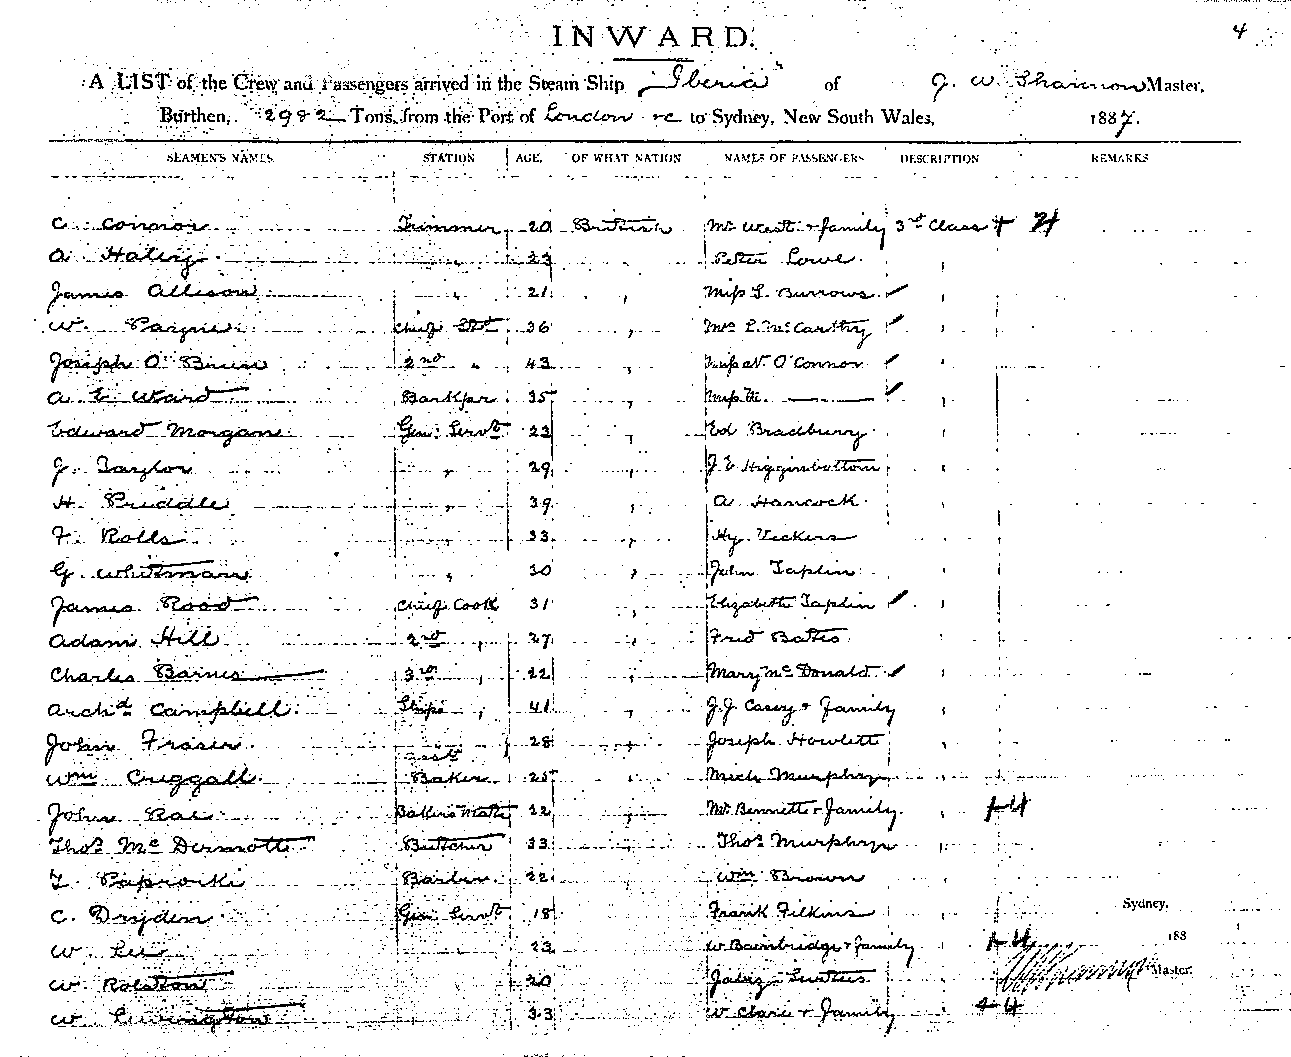 4
INWARD.
A LIST of the Crew and Passengers arrived in the Steam Ship "Iberia" of J. W. Shannon Master,
Burthen, 2982 Tons, from the Port of London &c to Sydney, New South Wales, 1887.
SEAMEN'S NAMES STATION AGE. OF WHAT NATION NAMES OF PASSENGERS DESCRIPTION REMARKS
C. Connor Trimmer 20 British Mr West & family 3rd Class + 4
A. " 23 " Peter Lowe "
James Allison " 21 " Miss L. Burrows "
W. Chief 36 " Mrs L. McCarthy "
Joseph O'Brien 2nd " 43 " Miss N. O'Connor "
A E Ward Barkpr 35 " Miss M. —— "
Edward Morgan Genl Servt 23 " Ed Bradbury "
J. Taylor " 29 " J. E Higginbottom "
H. Priddle " 39 " A. Hancock "
F. Rolls " 33 " Hy. Vickers "
G. Whitman " 30 " John Taplin "
James Rood Chief Cook 31 " Elizabeth Taplin "
Adam Hill 2nd " 27 " Fred Bates "
Charles Barnes 3rd " 22 " Mary McDonald "
Archd Campbell Ships " 41 " J. J. Casey & Family "
John Fraser " asst 28 " Joseph Howlett "
Wm Cuggall Baker 25 " Mich Murphy "
John Rae Bakers Mate 22 " Mr Bennett & Family " + 4
Thos McDermott Butcher 33 " Thos Murphy "
Barber 22 " Wm Brown "
C. Dryden Genl Servt 18 " Frank Filkins "
Sydney,
W. Lee " 23 " W Bainbridge & family " + 4 188
W. Rolston " 20 " Jabez "
Master.
W. 33 " W Clare & Family " + 4